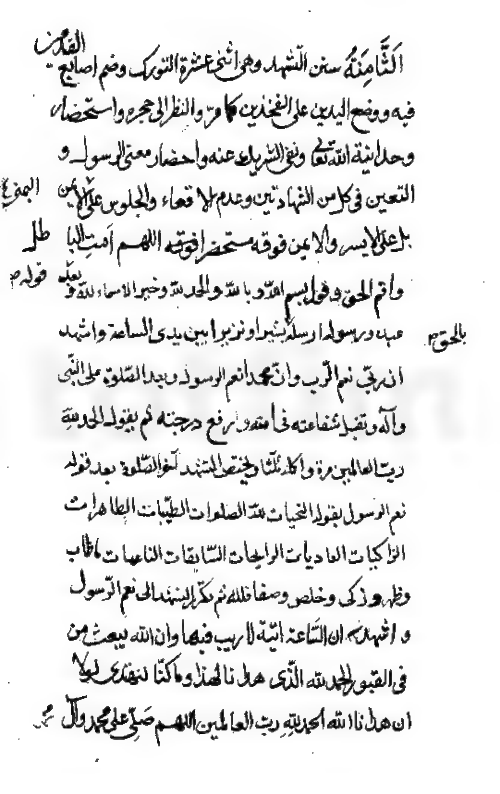 الثَّامِنَةُ سنن التشهد وهى اثنى عشرة التورك وضم اصابع القدمين
فيه ووضع اليدين على الفخذين كما مرّ والنظر الى حجره واستحضار
وحدانية الله تعالى ونفى الشريك عنه واحضار معنى الرسول و
التعين فى كل من الشهادتين وعدم الاقعاء والجلوس على الايمن
بل على الايسر والايمن فوقه مستحضرا فوقه اللهم امت الباطل
واقم الحق وقول بسم الله وبالله والحمد لله وخير الاسماء لله و
بعد قوله
عبده ورسوله ارسله بشيرا ونذيرا بين يدى الساعة واشهد
بالحق
ان ربّى نعم الرّب وانّ محمدا نعم الرسول وبعد الصّلوة على النّبى
وآله وتقبل شفاعته فى امته وارفع درجته ثم يقول الحمد لله
ربّ العالمين مرة واكمله ثلثا ويختص التشهد آخر الصّلوة بعد قوله
نعم الرسول بقوله التحيات لله الصلوات الطيّبات الطاهرات
الزاكيات الغاديات الرايحات السّابغات الناعمات ما طاب
وطهر وزكى وخلص وصفا فلله ثم يكرّر التشهد الى نعم الرّسول
و اشهد ان السّاعة آتية لا ريب فيها وان الله يبعث من
فى القبور الحمد لله الّذى هدانا لهذا وما كنّا لنهتدى لولا
ان هدانا الله الحمد للّه ربّ العالمين اللهم صَلّى على محمد وآل محمد